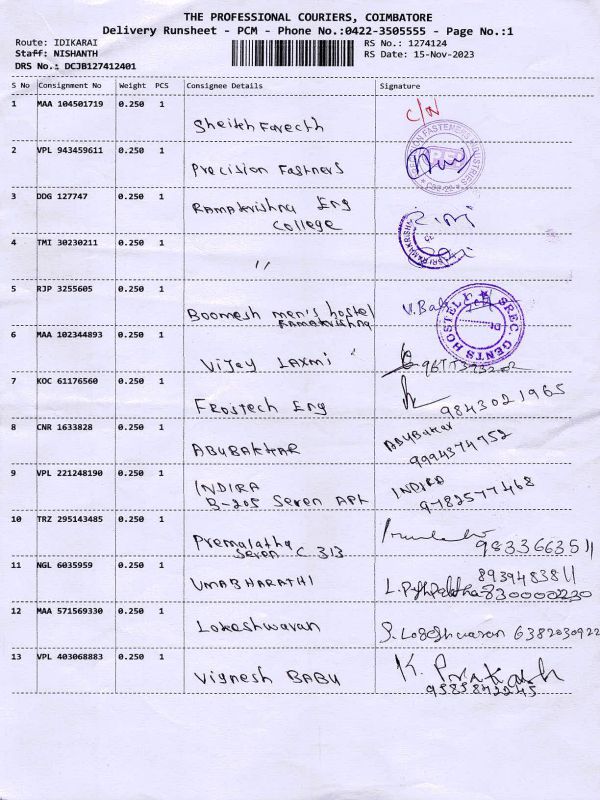 THE PROFESSIONAL COURIERS, COIMBATORE
Delivery Runsheet - PCM - Phone No.:0422-3505555 - Page No.:1
Route: IDIKARAI
RS No.: 1274124
Staff: NISHANTH
RS Date: 15-Nov-2023
DRS No.: DCJB127412401
S No Consignment No Weight PCS Consignee Details Signature
1 MAA 104501719 0.250 1
C/N
Sheikh Fareeth
2 VPL 943459611 0.250 1
Precision Fastners
3 DDG 127747 0.250 1
Ramakrishna Eng
College
4 TMI 30230211 0.250 1
"
5 RJP 3255605 0.250 1
Boomesh men's hostel
Ramakrishna
SREC. GENTS HOSTEL
6 MAA 102344893 0.250 1
Vijay Laxmi
7 KOC 61176560 0.250 1
Frostech Eng
9843021965
8 CNR 1633828 0.250 1
ABUBAKHAR
Abubakar
9994374752
9 VPL 221248190 0.250 1
INDIRA
B-205 Seven APt
INDIRA
9782577468
10 TRZ 295143485 0.250 1
Premalatha
Seven C 313
9833663511
11 NGL 6035959 0.250 1
UMABHARATHI
8939483811
12 MAA 571569330 0.250 1
Lokeshwaran
S. Logeshwaran 6382030922
13 VPL 403068883 0.250 1
Vignesh BABU
K. Prakash
9585842245